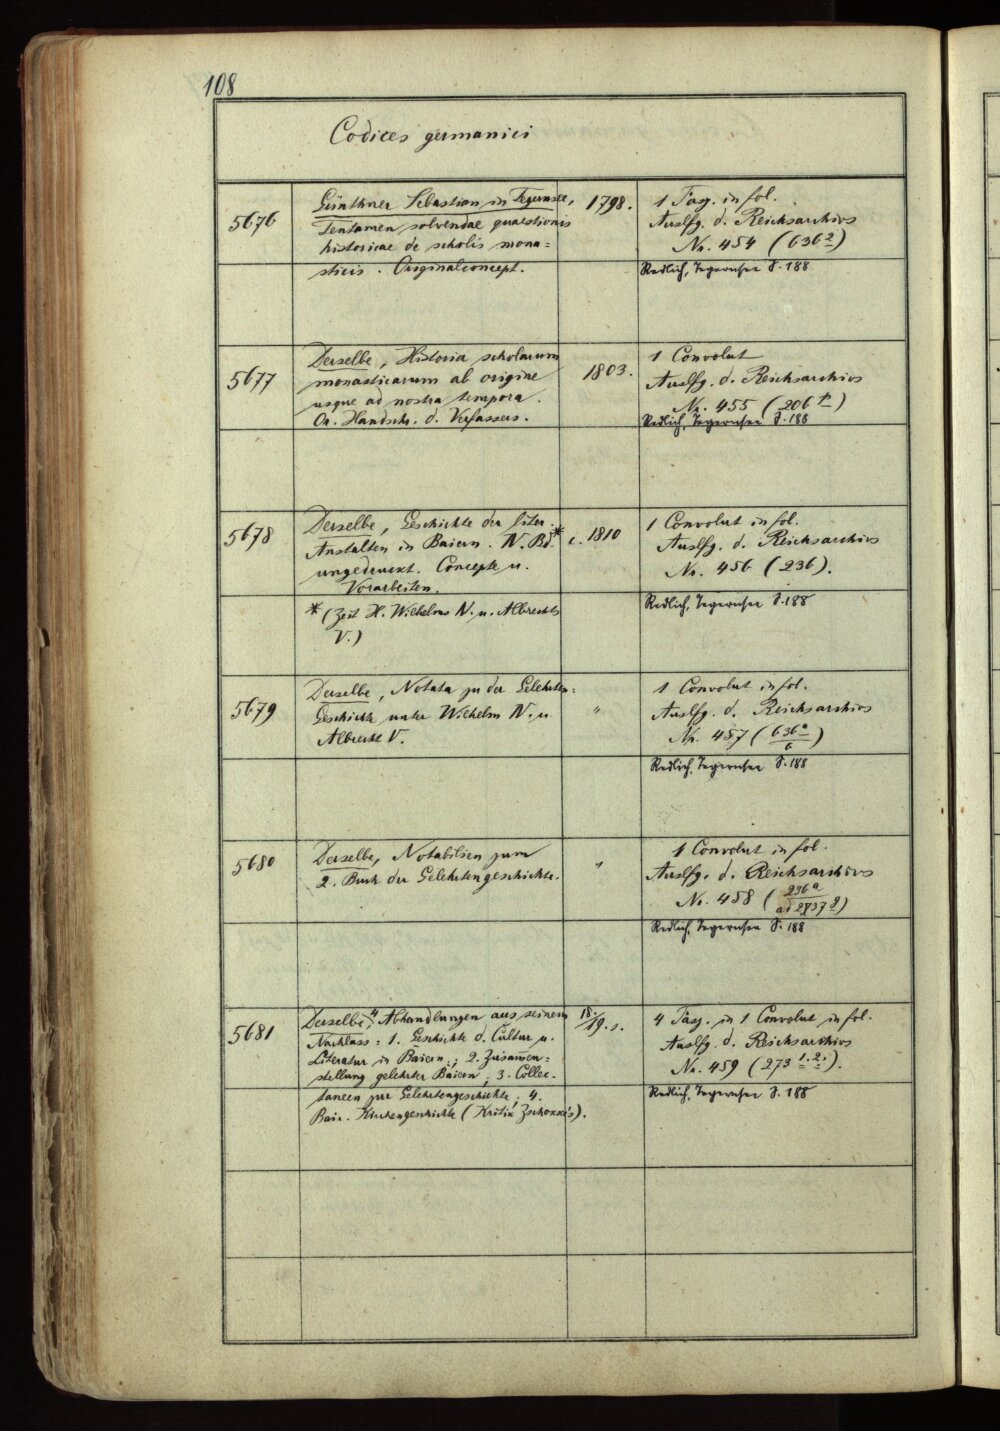 108
Codices germanici
5676
Günthner Sebastian in Tegernsee,
Tentamen solvendae quaestionis
historicae de scholis mona=
sticis. Originalconcept.
1798.
1 Fasz. in fol.
Auslfg. d. Reichsarchivs
Nr. 454 (636 2)
Redlich, Tegernsee S. 188
5677
Derselbe, Historia scholarum
monasticarum ab origine
usque ad nostra tempora.
Or. Handschr. d. Verfassers.
1803.
1 Convolut
Auslfg. d. Reichsarchivs
Nr. 455 (206 b)
Redlich, Tegernsee S. 188
5678
Derselbe, Geschichte der liter.
Anstalten in Baiern. IV. Bd.*
ungedruckt. Concepte u.
Vorarbeiten.
* (Zeit H. Wilhelms IV. u. Albrechts
V.)
c. 1810
1 Convolut in fol.
Auslfg. d. Reichsarchivs
Nr. 456 (236).
Redlich, Tegernsee S. 188
5679
Derselbe, Notata zu der Gelehrten=
Geschichte unter Wilhelm IV. u.
Albrecht V.
"
1 Convolut in fol.
Auslfg. d. Reichsarchivs
Nr. 457 (636 a/b)
Redlich, Tegernsee S. 188
5680
Derselbe, Notabilien zum
2. Buch der Gelehrtengeschichte.
"
1 Convolut in fol.
Auslfg. d. Reichsarchivs
Nr. 458 (236 a
Redlich, Tegernsee S. 188
5681
Derselbe, 4 Abhandlungen aus seinem
Nachlass: 1. Geschichte d. Cultur u.
Literatur in Baiern; 2. Zusamen=
stellung gelehrter Baiern; 3. Collec=
taneen zur Gelehrtengeschichte; 4.
Bair. Kirchengeschichte (Kritik Zschokke's).
18./19. s.
4 Fasz. in 1 Convolut in fol.
Auslfg. d. Reichsarchivs
Nr. 459 (273 1.2.).
Redlich, Tegernsee S. 188